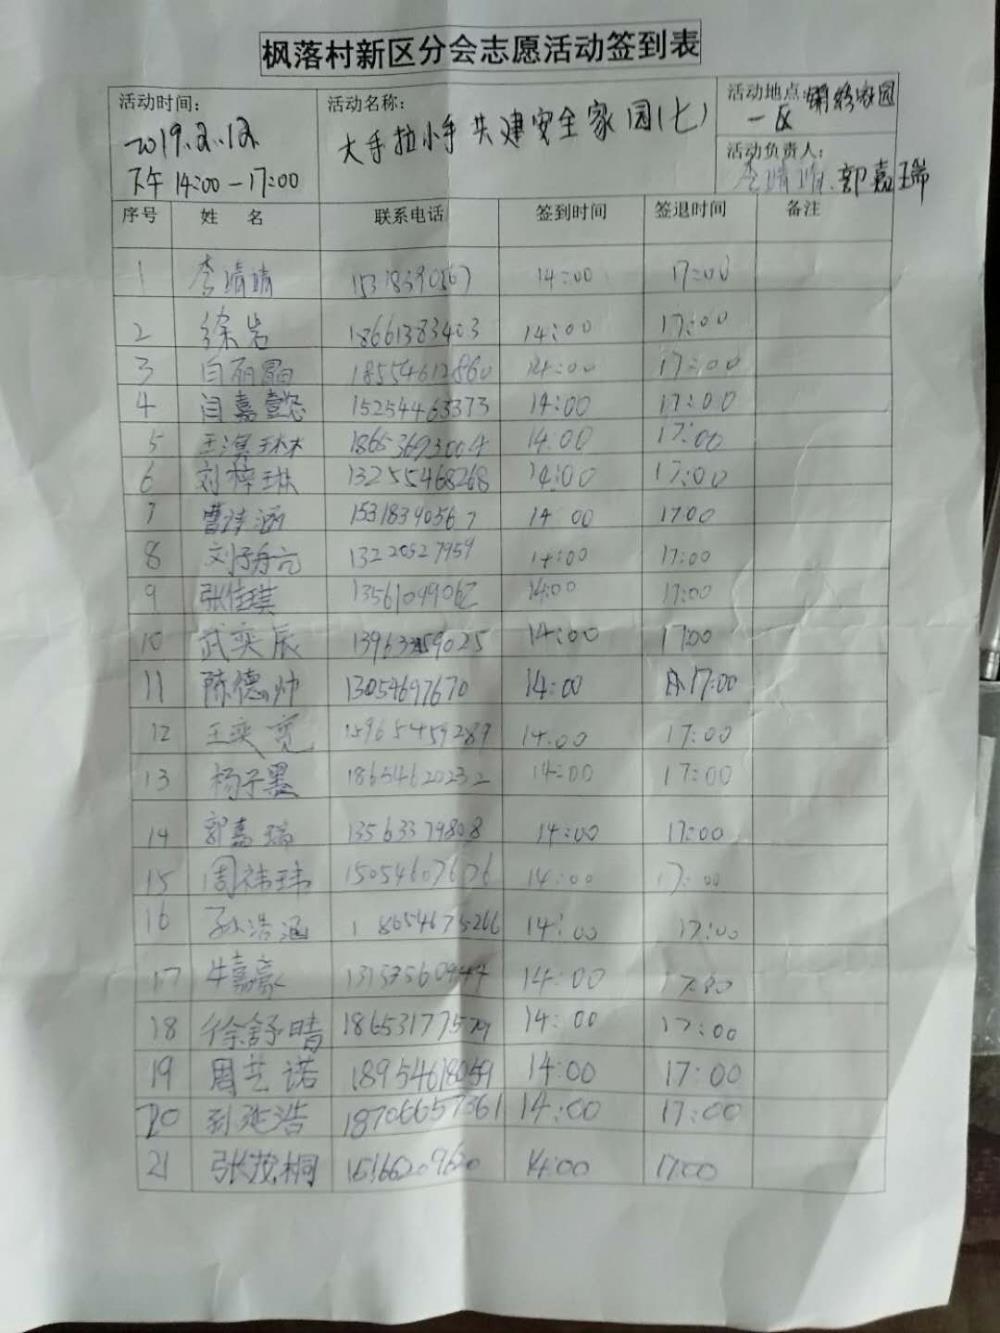 枫落村新区分会志愿活动签到表
活动时间： 2019.2.12 下午14:00-17:00
活动名称： 大手拉小手共建安全家园(七)
活动地点： 锦绣家园一区
活动负责人： 李晴晴、郭嘉瑞
序号 姓 名 联系电话 签到时间 签退时间 备注
1 李晴晴 15318390567 14:00 17:00
2 徐岩 18661383403 14:00 17:00
3 白丽晶 18554612860 14:00 17:00
4 闫嘉懿 15254463373 14:00 17:00
5 王淇琳 18653693004 14:00 17:00
6 刘梓琳 13255468268 14:00 17:00
7 曹诗涵 15318390567 14 00 17:00
8 刘子舟亢 13220527959 14:00 17:00
9 张佳琪 13561099062 14:00 17:00
10 武奕辰 14:00 17:00
11 陈德帅 13054697670 14:00 17:00
12 王奕 15965459289 14:00 17:00
13 杨子墨 18654620232 14:00 17:00
14 郭嘉瑞 13563379808 14:00 17:00
15 周祎玮 15054607676 14:00 17:00
16 孙浩涵 18654675266 14:00 17:00
17 牛嘉豪 14:00 17:00
18 徐舒晴 18653177579 14:00 17:00
19 周艺诺 18954618059 14:00 17:00
20 刘延浩 18706657361 14:00 17:00
21 张茂桐 15166209620 14:00 17:00